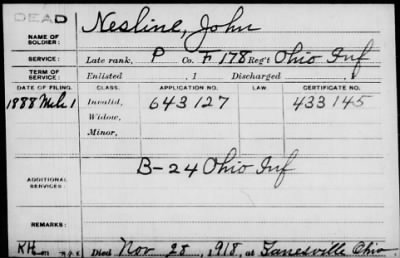 DEAD
NAME OF SOLDIER: Nesline, John
SERVICE: Late rank, P Co. F 178 Reg't Ohio Inf
TERM OF SERVICE: Enlisted , 1 Discharged , 1
DATE OF FILING. CLASS. APPLICATION NO. LAW. CERTIFICATE NO.
1888 1 Invalid, 643127 433145
Widow,
Minor,
ADDITIONAL SERVICES: B-24 Ohio Inf
REMARKS:
Died Nov 28, 1918, at Zanesville Ohio